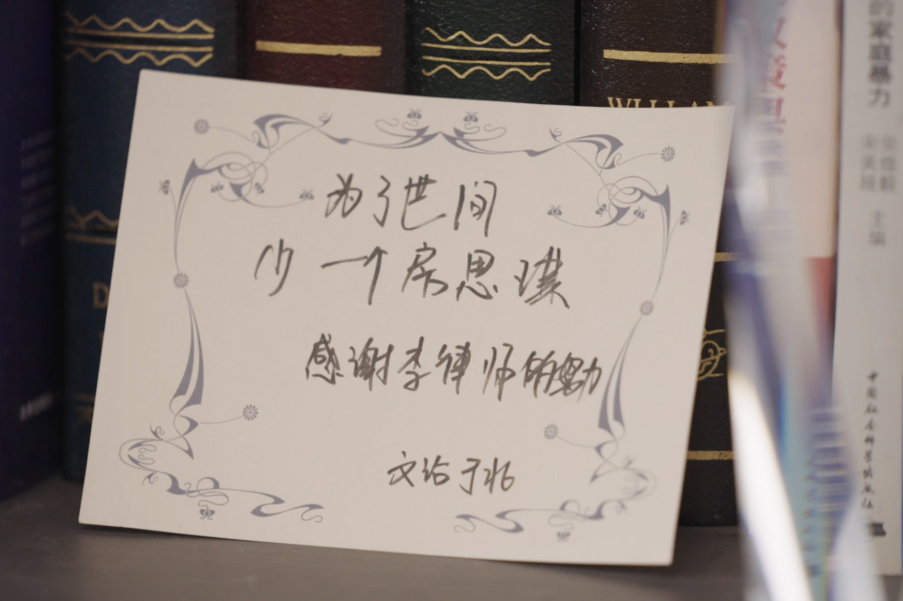 为了世间
少一个房思琪
感谢李律师的努力
WILLIAM
的家庭暴力
主编
中国社会科学出版社